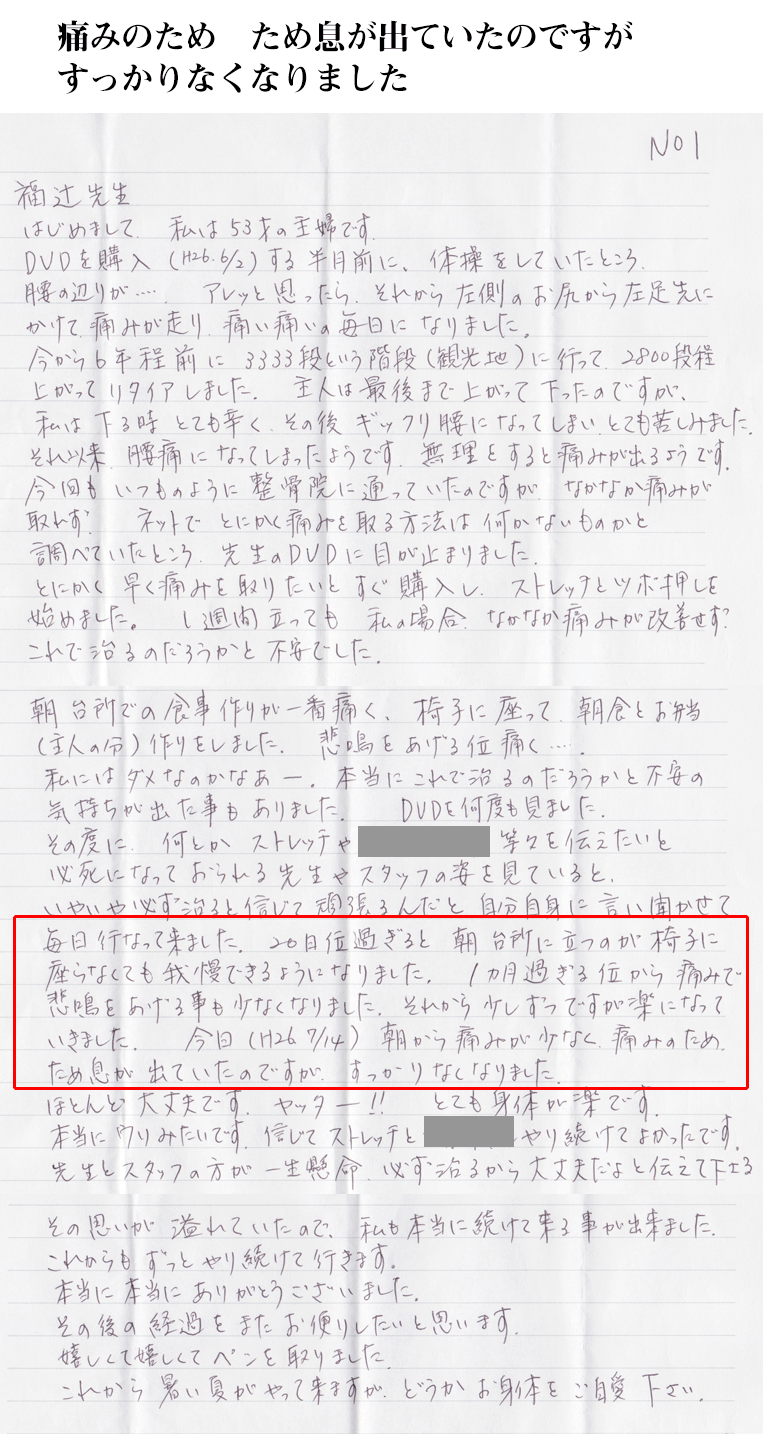 痛みのため　ため息が出ていたのですが
すっかりなくなりました
NO1
福辻先生
はじめまして、私は53才の主婦です。
DVDを購入（H26.6/2）する半月前に、体操をしていたところ、
腰の辺りが‥‥ アレッと思ったら、それから左側のお尻から左足先に
かけて痛みが走り、痛い痛いの毎日になりました。
今から6年程前に3333段という階段（観光地）に行って、2800段程
上がってリタイアしました。 主人は最後まで上がって下ったのですが、
私は下る時とても辛く、その後ギックリ腰になってしまい、とても苦しみました。
それ以来、腰痛になってしまったようです。無理をすると痛みが出るようです。
今回もいつものように整骨院に通っていたのですが、なかなか痛みが
取れず、 ネットでとにかく痛みを取る方法は何かないものかと
調べていたところ、先生のDVDに目が止まりました。
とにかく早く痛みを取りたいとすぐ購入し、ストレッチとツボ押しを
始めました。 1週間立っても私の場合、なかなか痛みが改善せず、
これで治るのだろうかと不安でした。
朝台所での食事作りが一番痛く、椅子に座って、朝食とお弁当
（主人の分）作りをしました。 悲鳴をあげる位痛く‥‥。
私にはダメなのかなあー。本当にこれで治るのだろうかと不安の
気持ちが出た事もありました。 DVDを何度も見ました。
その度に、何とかストレッチや 等々を伝えたいと
必死になっておられる先生やスタッフの姿を見ていると、
いやいや必ず治ると信じて頑張るんだと自分自身に言い聞かせて
毎日行なって来ました。20日位過ぎると朝台所に立つのが椅子に
座らなくても我慢できるようになりました。1カ月過ぎる位から痛みで
悲鳴をあげる事も少なくなりました。それから少しずつですが楽になって
いきました。 今日（H26.7/14）朝から痛みが少なく、痛みのため、
ため息が出ていたのですが、すっかりなくなりました。
ほとんど大丈夫です。ヤッター!! とても身体が楽です。
本当にウソみたいです。信じてストレッチと やり続けてよかったです。
先生とスタッフの方が一生懸命、必ず治るから大丈夫だよと伝えて下さる
その思いが溢れていたので、私も本当に続けて来る事が出来ました。
これからもずっとやり続けて行きます。
本当に本当にありがとうございました。
その後の経過をまたお便りしたいと思います。
嬉しくて嬉しくてペンを取りました。
これから暑い夏がやって来ますが、どうかお身体をご自愛下さい。